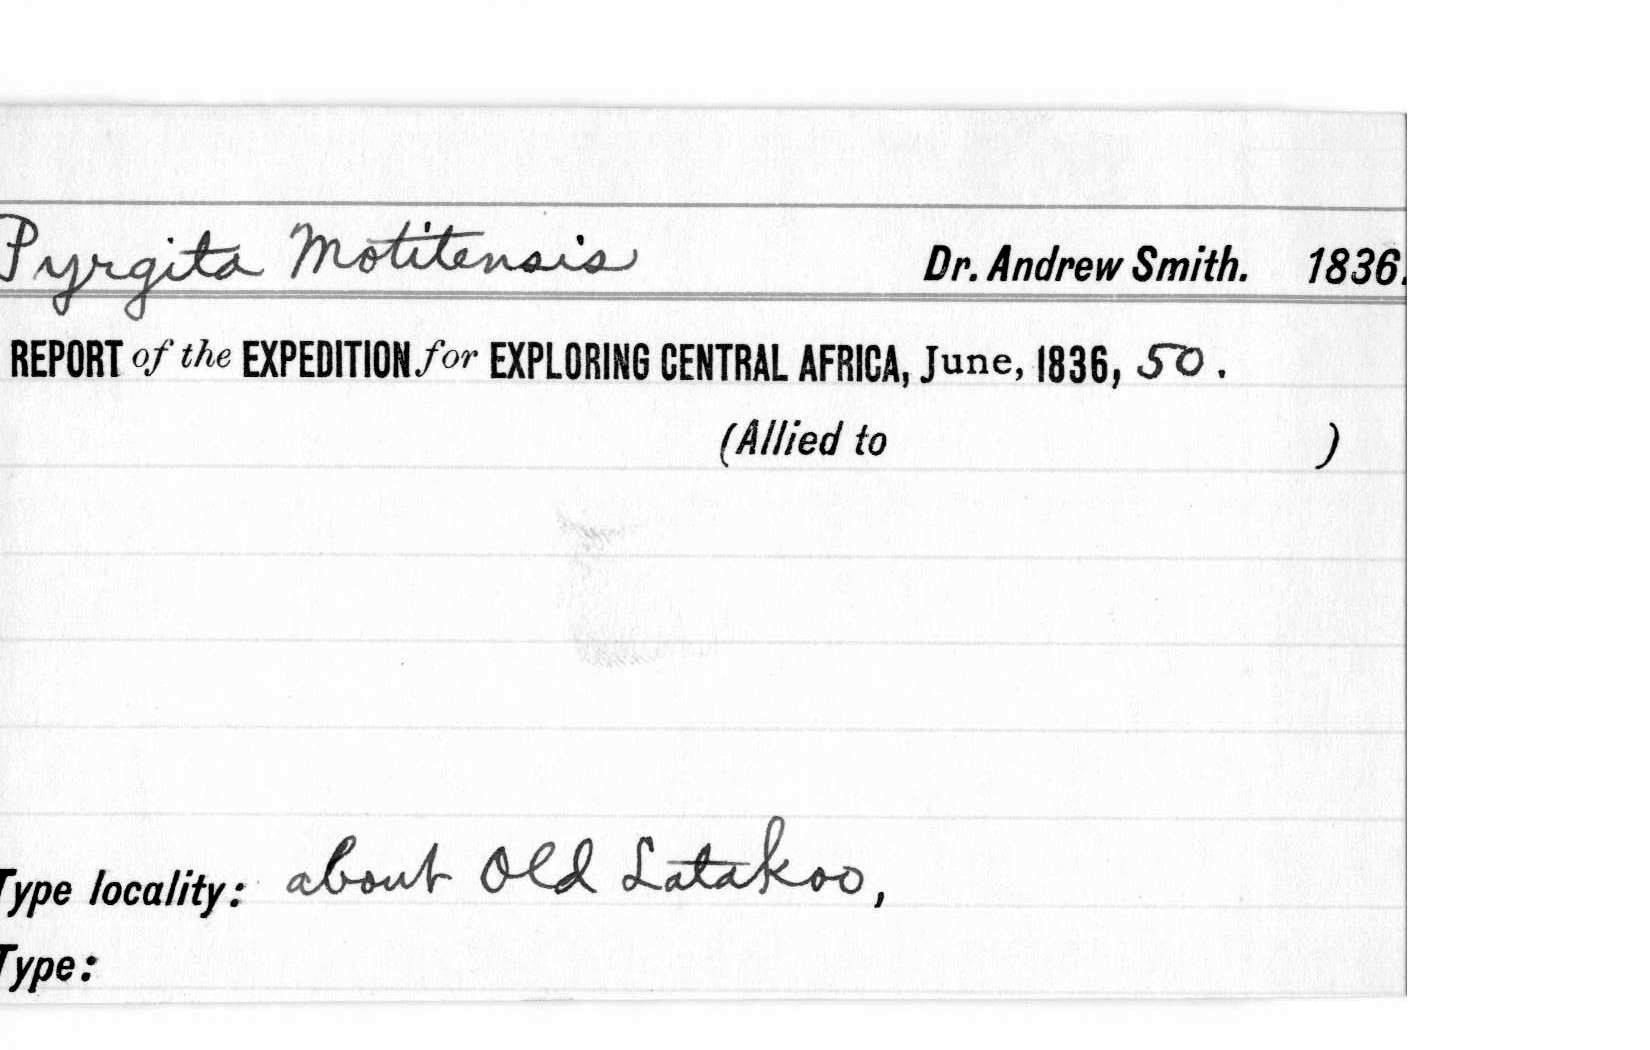 Pyrgita Motitensis Dr. Andrew Smith. 1836.
REPORT of the EXPEDITION for EXPLORING CENTRAL AFRICA, June, 1836, 50.
(Allied to )
Type locality: about Old Latakoo,
Type: